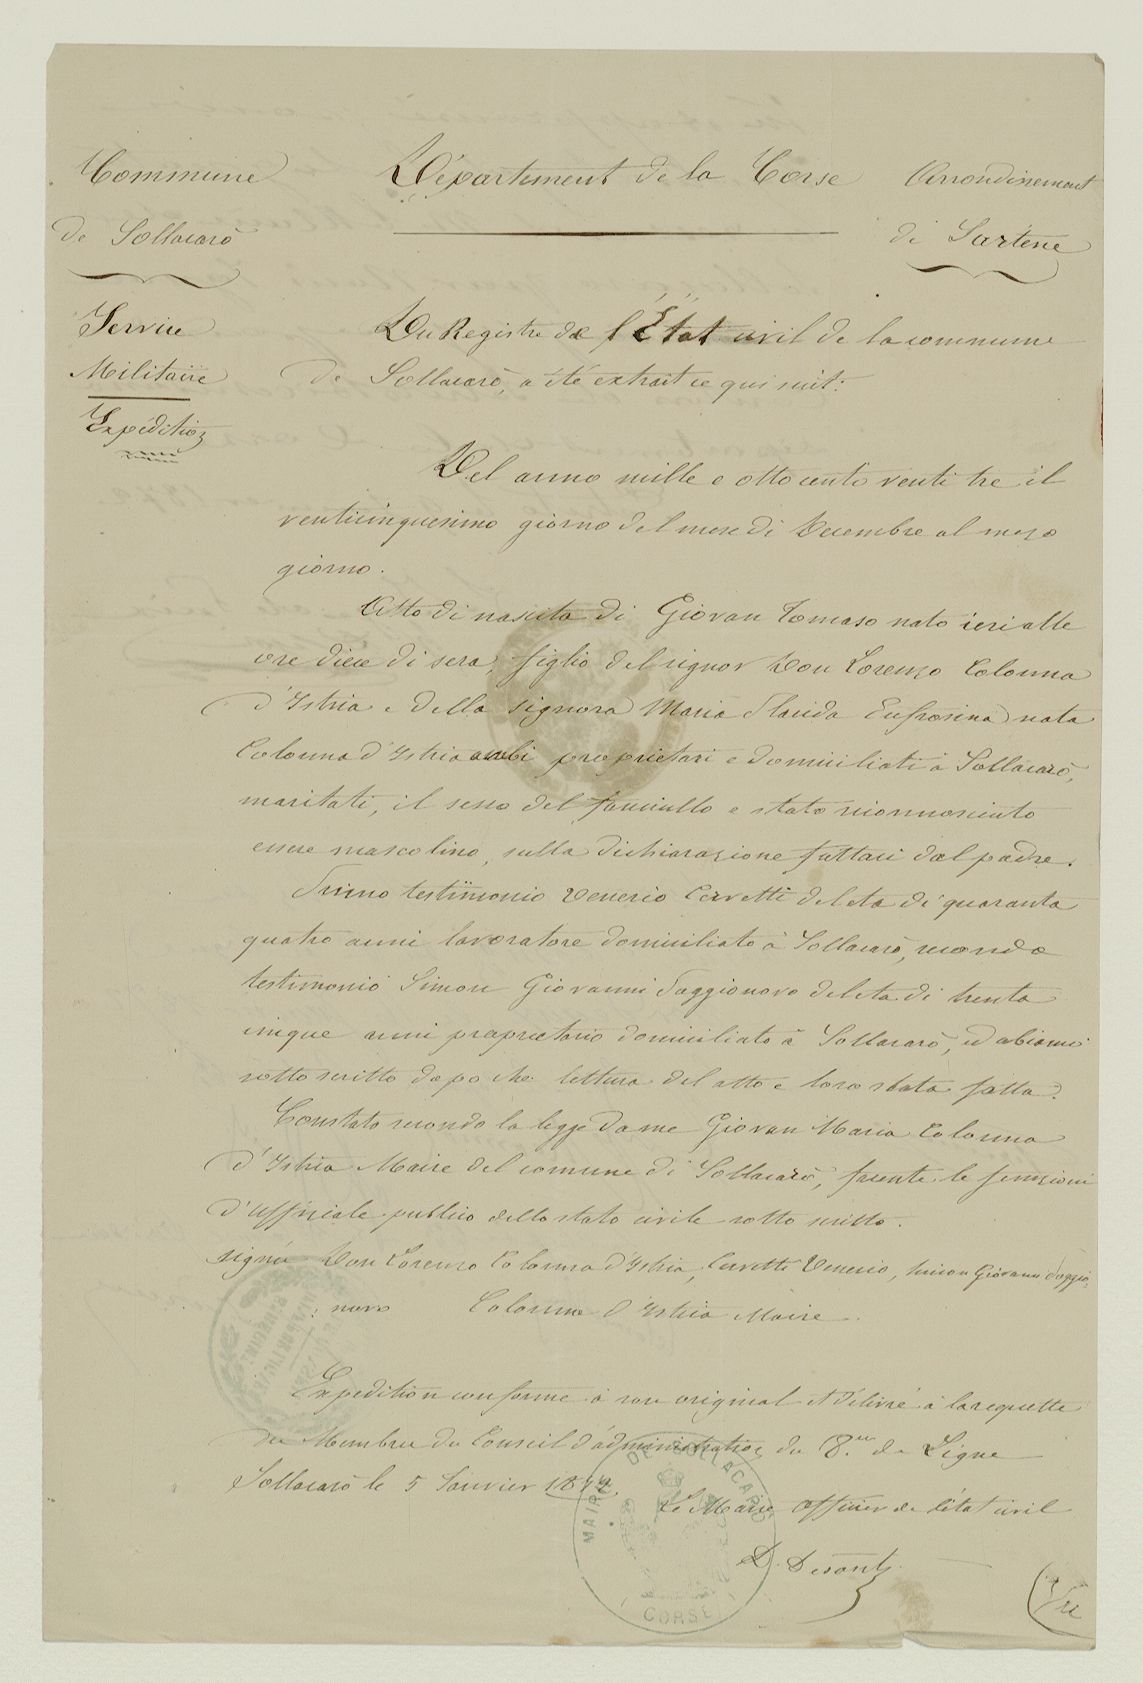 Commune
de Sollacarò
Département de la Corse
Arrondissement
de Sartène
Service
Militaire
Expédition
Du Registre de l'État civil de la commune
de Sollacarò, a été extrait ce qui suit:
Del anno mille e ottocento venti tre il
venticinquesimo giorno del mese di Decembre al mezo
giorno.
Atto di nascita di Giovan Tomaso nato ieri alle
ore diece di sera, figlio del signor Don Lorenzo Colonna
d'Istria e della signora Maria Placida Eufrosina nata
Colonna d'Istria ambi proprietari e domiciliati à Sollacarò,
maritati, il sesso del fanciullo e stato riconnosciuto
essere mascolino, sulla dichiarazione fattaci dal padre.
Primo testimonio Venerio Cervetti del eta di quaranta
quatro anni lavoratore domiciliato à Sollacarò, secondo
testimonio Simon Giovanni Poggionovo del eta di trenta
cinque anni proprietario domiciliato à Sollacarò, ed abiamo
sotto scritto dopo che lettura del atto e loro stata fatta.
Constato secondo la legge da me Giovan Maria Colonna
d'Istria Maire del comune di Sollacarò, facente le funzioni
d'uffiziale publico dello stato civile sotto scritto.
signé Don Lorenzo Colonna d'Istria, Cervetti Venerio, Simon Giovanni Poggio-
novo Colonna d'Istria Maire.
Expedition conforme à son original et délivré à la requette
des Membres du Conseil d'administration du 8.me de Ligne
Sollacarò le 5 Janvier
Le Maire officier de l'état civil
MAIRIE DE SOLLACARO
CORSE
Vu